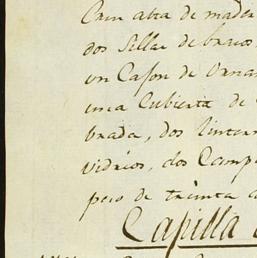 Cruz alta de made
dos Sillas de brazos
un Cajon de Orna
una Cubierta de
brada, dos linter
vidrios, dos Campa
peso de treinta
Capilla